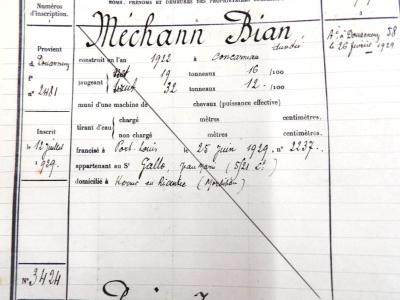 NOMS, PRÉNOMS ET DEMEURES DES PROPRIÉTAIRES
Numéros
d'inscription.
Méchann Bian
dundée
A : à Douarnenez 58
le 26 février 1929
Provient
d Douarnenez
f°
n° 2481
construit en l'an 1922 à Concarneau
jaugeant
net 19 tonneaux 16 /100
brut 32 tonneaux 12 /100
muni d'une machine de chevaux (puissance effective)
tirant d'eau
chargé mètres centimètres.
non chargé mètres centimètres.
Inscrit
le 12 juillet
1929.
francisé à Port-Louis le 25 juin 1929. n° 2237.
appartenant au Sr Gallo, Jean Marie (5/21 è)
domicilié à en Riantec (Morbihan)
N° 3424